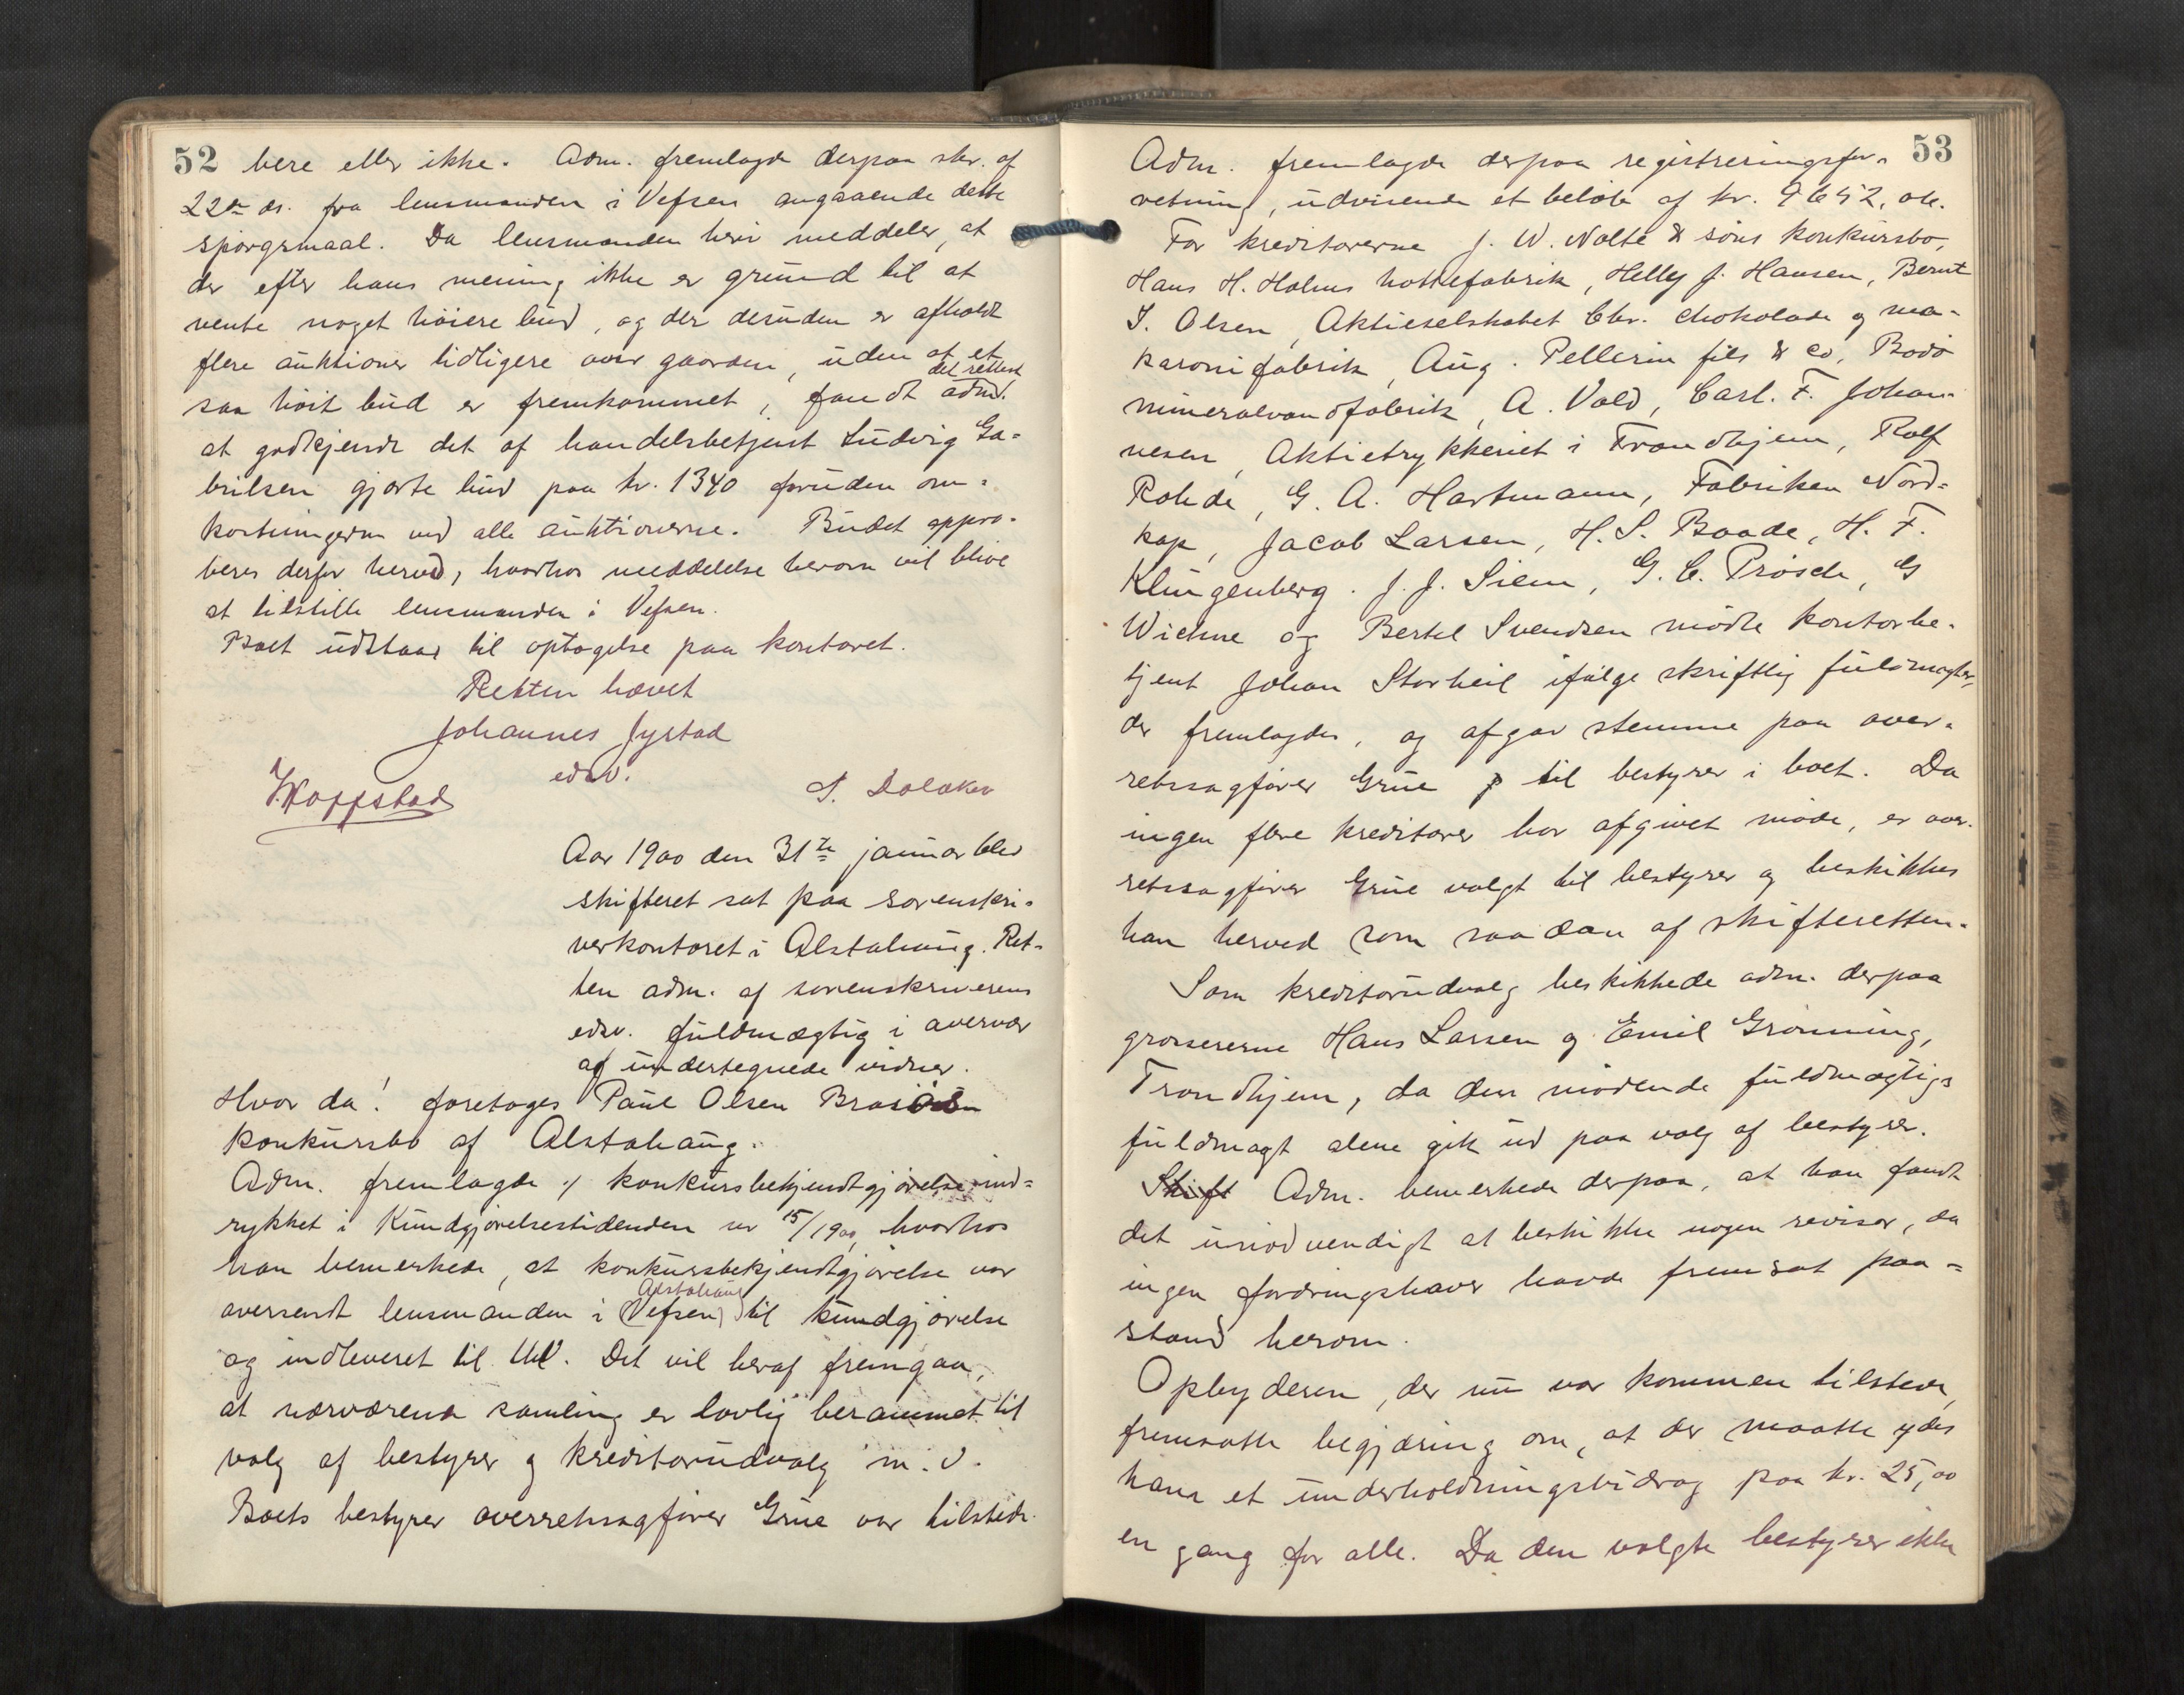 52 bere eller ikke. Adm. fremlagde derpaa skr. af
22de ds. fra lensmanden i Vefsen angaaende dette
spørgsmaal. Da lensmanden heri meddeler, at
der efter hans mening ikke er grund til at
vente noget høiere bud, og der desuden er afholdt
flere auktioner tidligere over gaarden, uden at et
det rettest
saa høit bud er fremkommet, fandt adm.
at godkjende det af handelsbetjent Ludvig Ga-
brilsen gjorte bud paa kr. 1340 foruden om-
kostningerne ved alle auktionerne. Budet appro-
beres derfor herved, hvorhos meddelelse herom vil blive
at tilstille lensmanden i Vefsen.
Boet udstaar til optagelse paa kontoret.
Retten hævet
Johannes Jystad
edsv.
J. Koppstad
S. Dolaker
Aar 1900 den 31te januar blev
skifteret sat paa sorenskri-
verkontoret i Alstahaug. Ret-
ten adm. af sorenskriverens
edsv. fuldmægtig i overvær
af undertegnede vidner.
Hvor da! foretoges Paul Olsen
konkursbo af Alstahaug.
Adm. fremlagde 1/ konkursbekjendtgjørelse ind-
rykket i Kundgjørelsestidenden nr 15/1900, hvorhos
han bemerkede, at konkursbekjendtgjørelse var
Alstahaug
oversendt lensmanden i (Vefsen) til kundgjørelse
og indleveret til U.V. Det vil heraf fremgaa,
at nærværende samling er lovlig berammet til
valg af bestyrer og kreditorudvalg m. v.
Boets bestyrer overretssagfører Grüe var tilstede.
53
Adm. fremlagde derpaa registreringsfor-
retning, udvisende et beløb af kr. 9652, ote.
For kreditorerne J. W. Nolte & søns konkursbo,
Hans H. Holms hattefabrik, Helly J. Hansen, Bernt
I. Olsen, Aktieselskabet Chr. chokolade og ma-
karonifabrik, Aug. Pellerin fils & co, Bodø
mineralvandfabrik, A. Vold, Carl. F. Johan-
nesen, Aktietrykkeriet i Trondhjem, Rolf
Rohde, G. A. Hartmann, Fabriken Nord-
kap, Jacob Larsen, H. S. Baade, H. F.
Klingenberg. J. J. Siem, G. C. Prösch, G
Wichne og Bertel Svendsen mødte kontorbe-
tjent Johan Storheil ifølge skriftlig fuldmagter,
der fremlagdes, og afgav stemme paa over-
retssagfører Grüe p til bestyrer i boet. Da
ingen flere kreditorer har afgivet møde, er over-
retssagfører Grüe valgt til bestyrer og beskikkes
han herved som saadan af skifteretten.
Som kreditorudvalg beskikkede adm. derpaa
grossererne Hans Larsen og Emil Grønning,
Trondhjem, da den mødende fuldmægtigs
fuldmagt alene gik ud paa valg af bestyrer.
Skift Adm. bemerkede derpaa, at han fandt
det unødvendigt at beskikke nogen revisor, da
ingen fordringshaver havde fremsat paa-
stand herom.
Opbyderen, der nu var kommen tilstede,
fremsatte begjæring om, at der maatte ydes
ham et underholdningsbidrag paa kr. 25,00
en gang for alle. Da den valgte bestyrer ikke